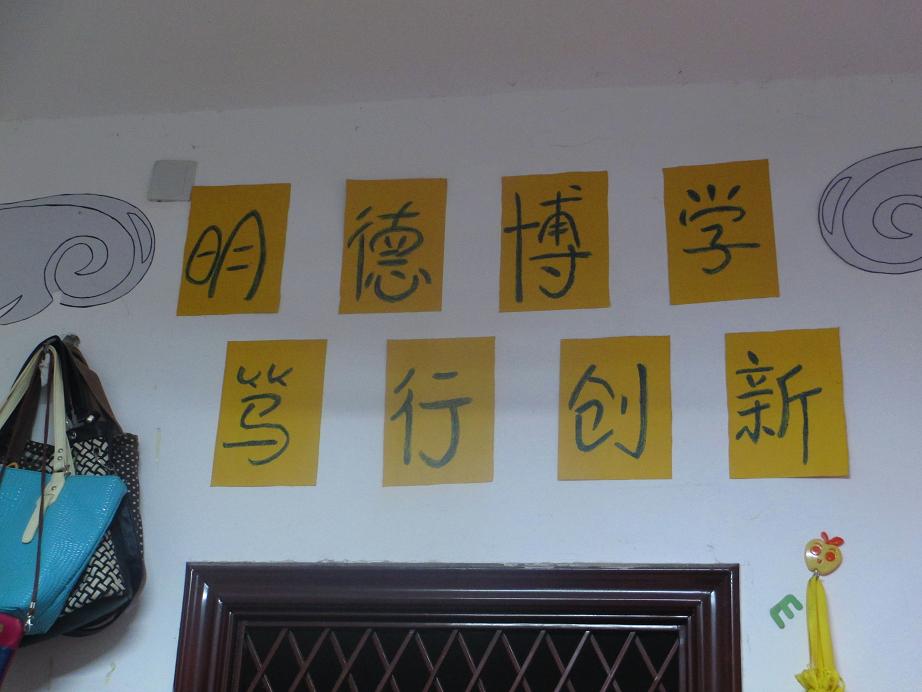 明德博学
笃行创新
E